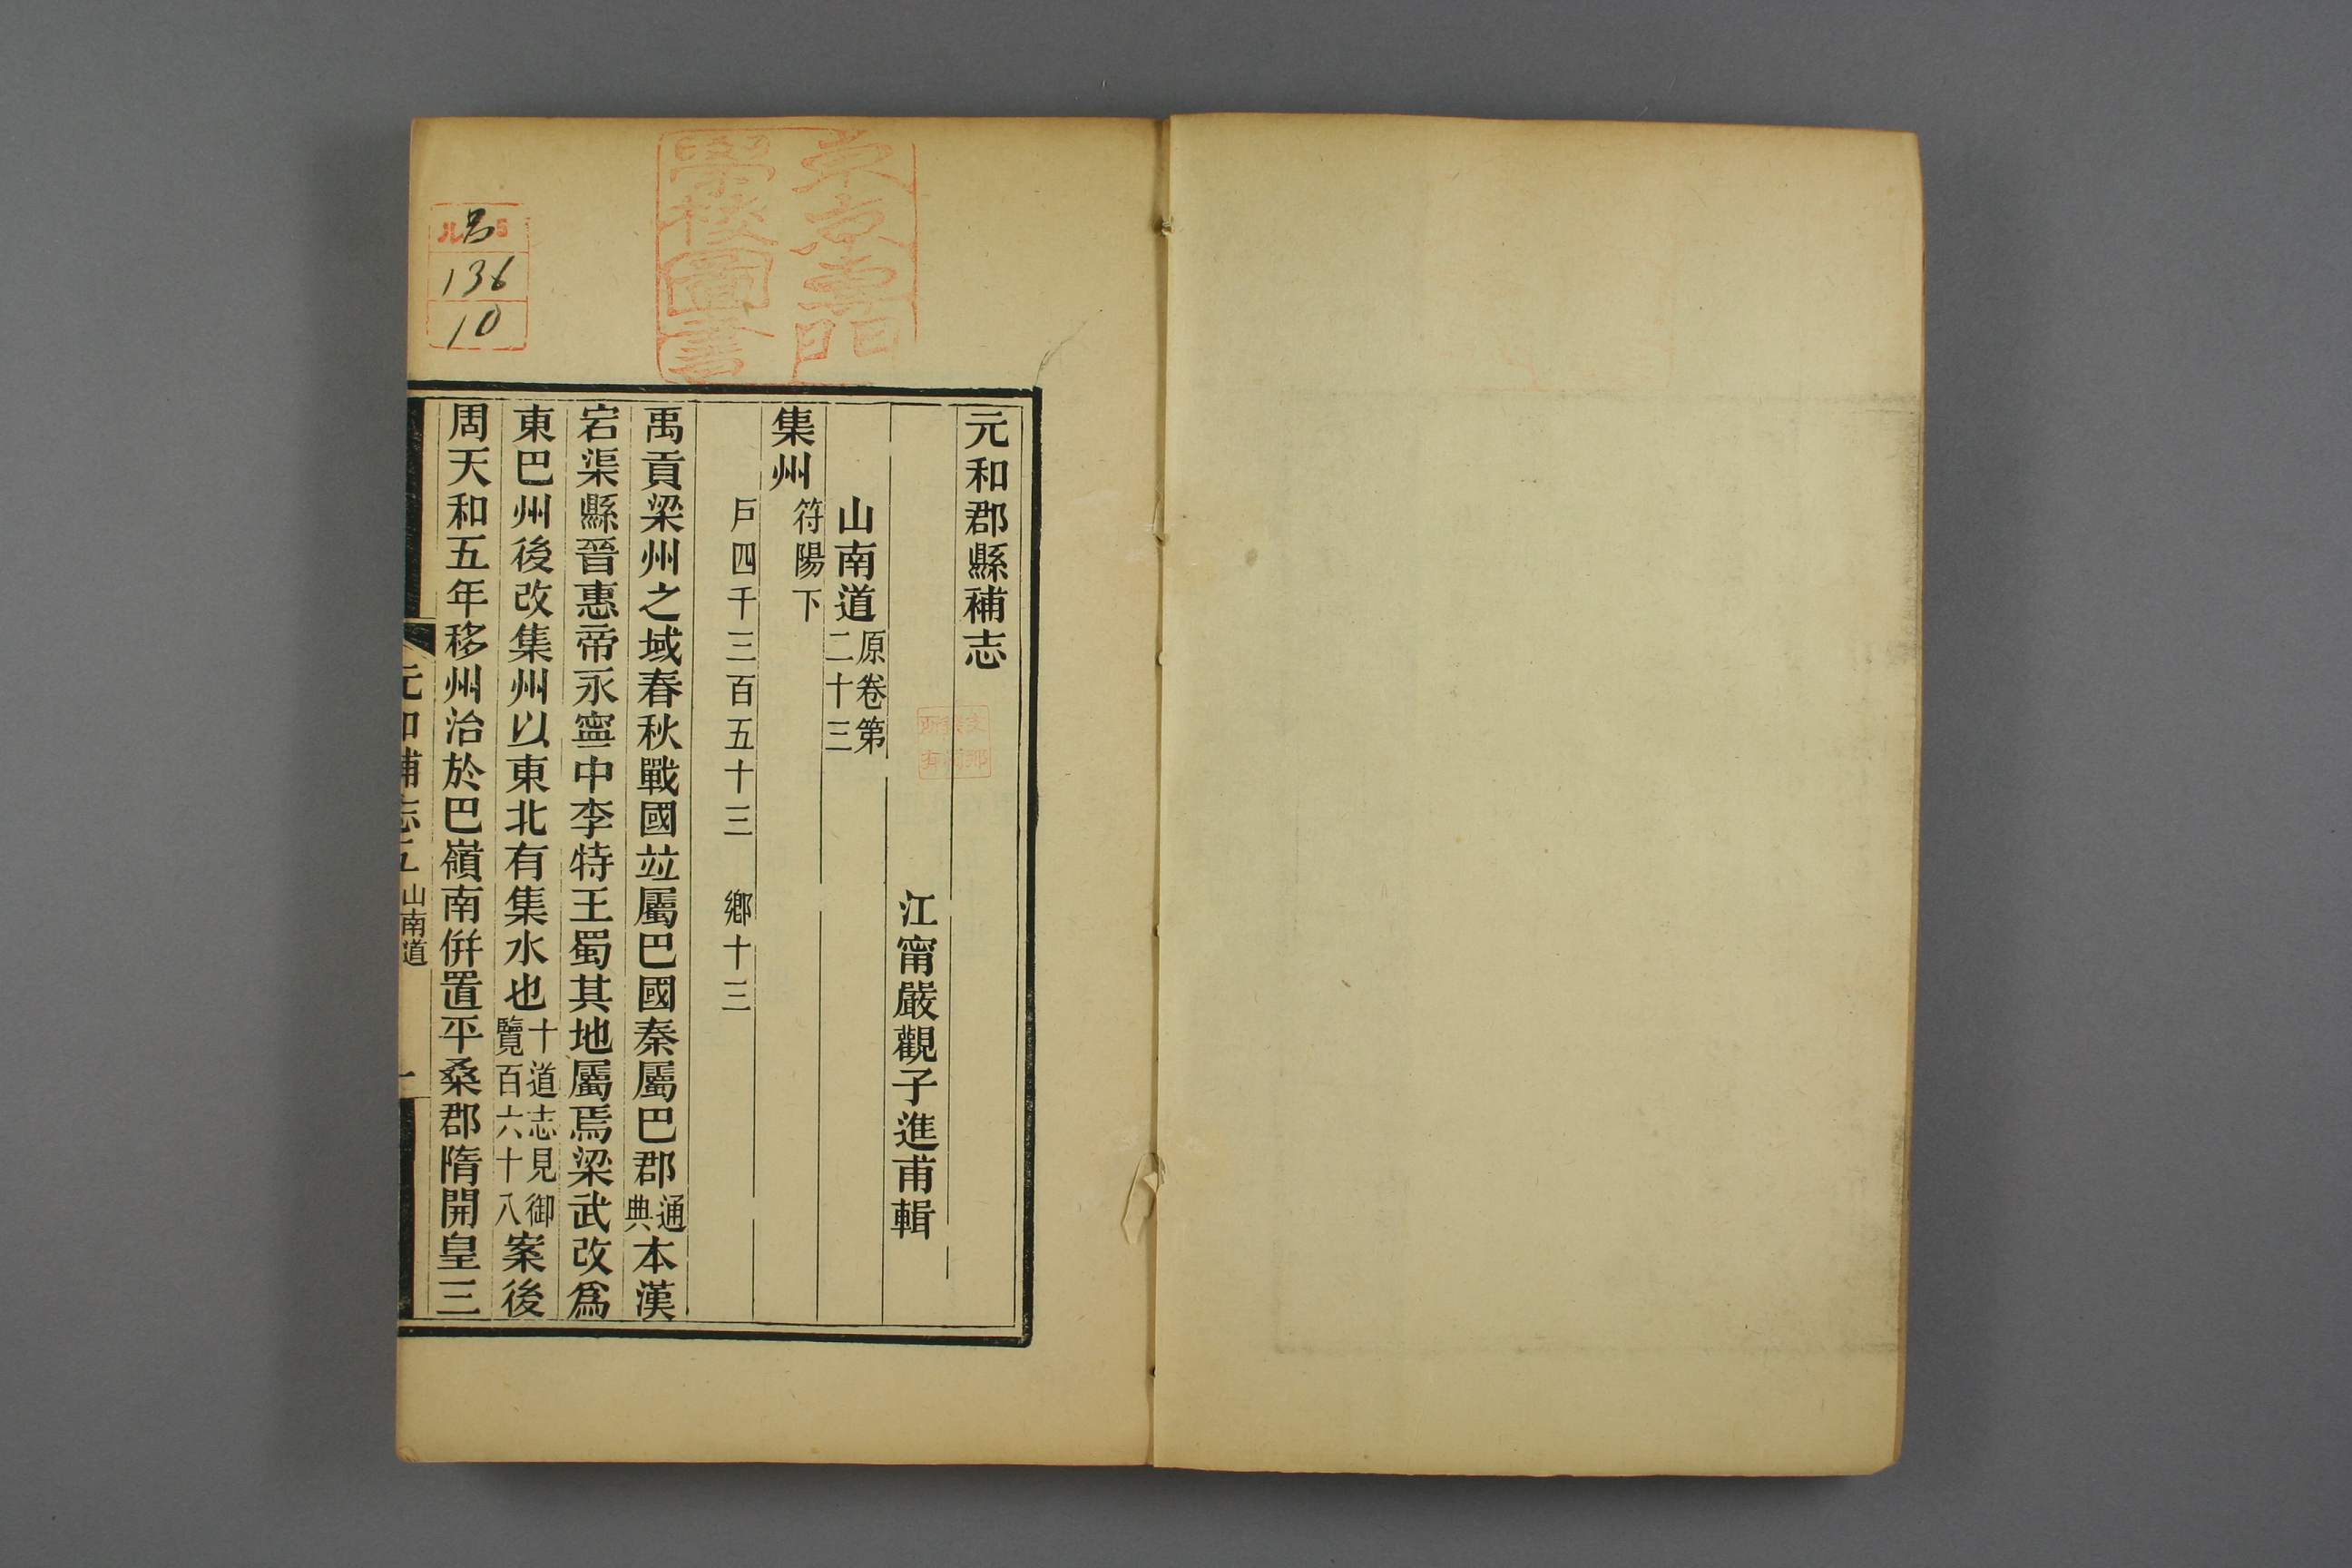 元和郡縣補志
江甯嚴觀子進甫輯
山南道原卷第二十三
集州符陽下
戶四千三百五十三　鄉十三
禹貢梁州之域春秋戰國竝屬巴國秦屬巴郡通典本漢
宕渠縣晉惠帝永寧中李特王蜀其地屬焉梁武改爲
東巴州後改集州以東北有集水也十道志見御覽百六十八案後
周天和五年移州治於巴嶺南併置平桑郡隋開皇三
元和補志五 山南道 一
東京專門
學校圖書
136
10